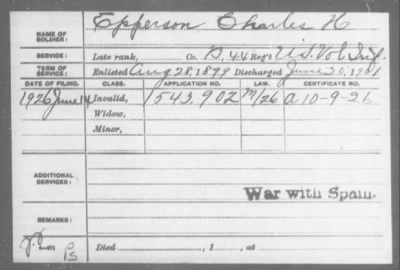 NAME OF SOLDIER: Epperson Charles H
SERVICE: Late rank, Co. D. 44 Reg't U.S. Vol Inf.
TERM OF SERVICE: Enlisted Aug 28, 1899 Discharged June 30, 1901
DATE OF FILING. CLASS. APPLICATION NO. LAW. CERTIFICATE NO.
1926 June 14 Invalid, 1543.902 a 10-9-26
Widow,
Minor,
ADDITIONAL SERVICES:
War with Spain.
REMARKS:
Died , 1 , at